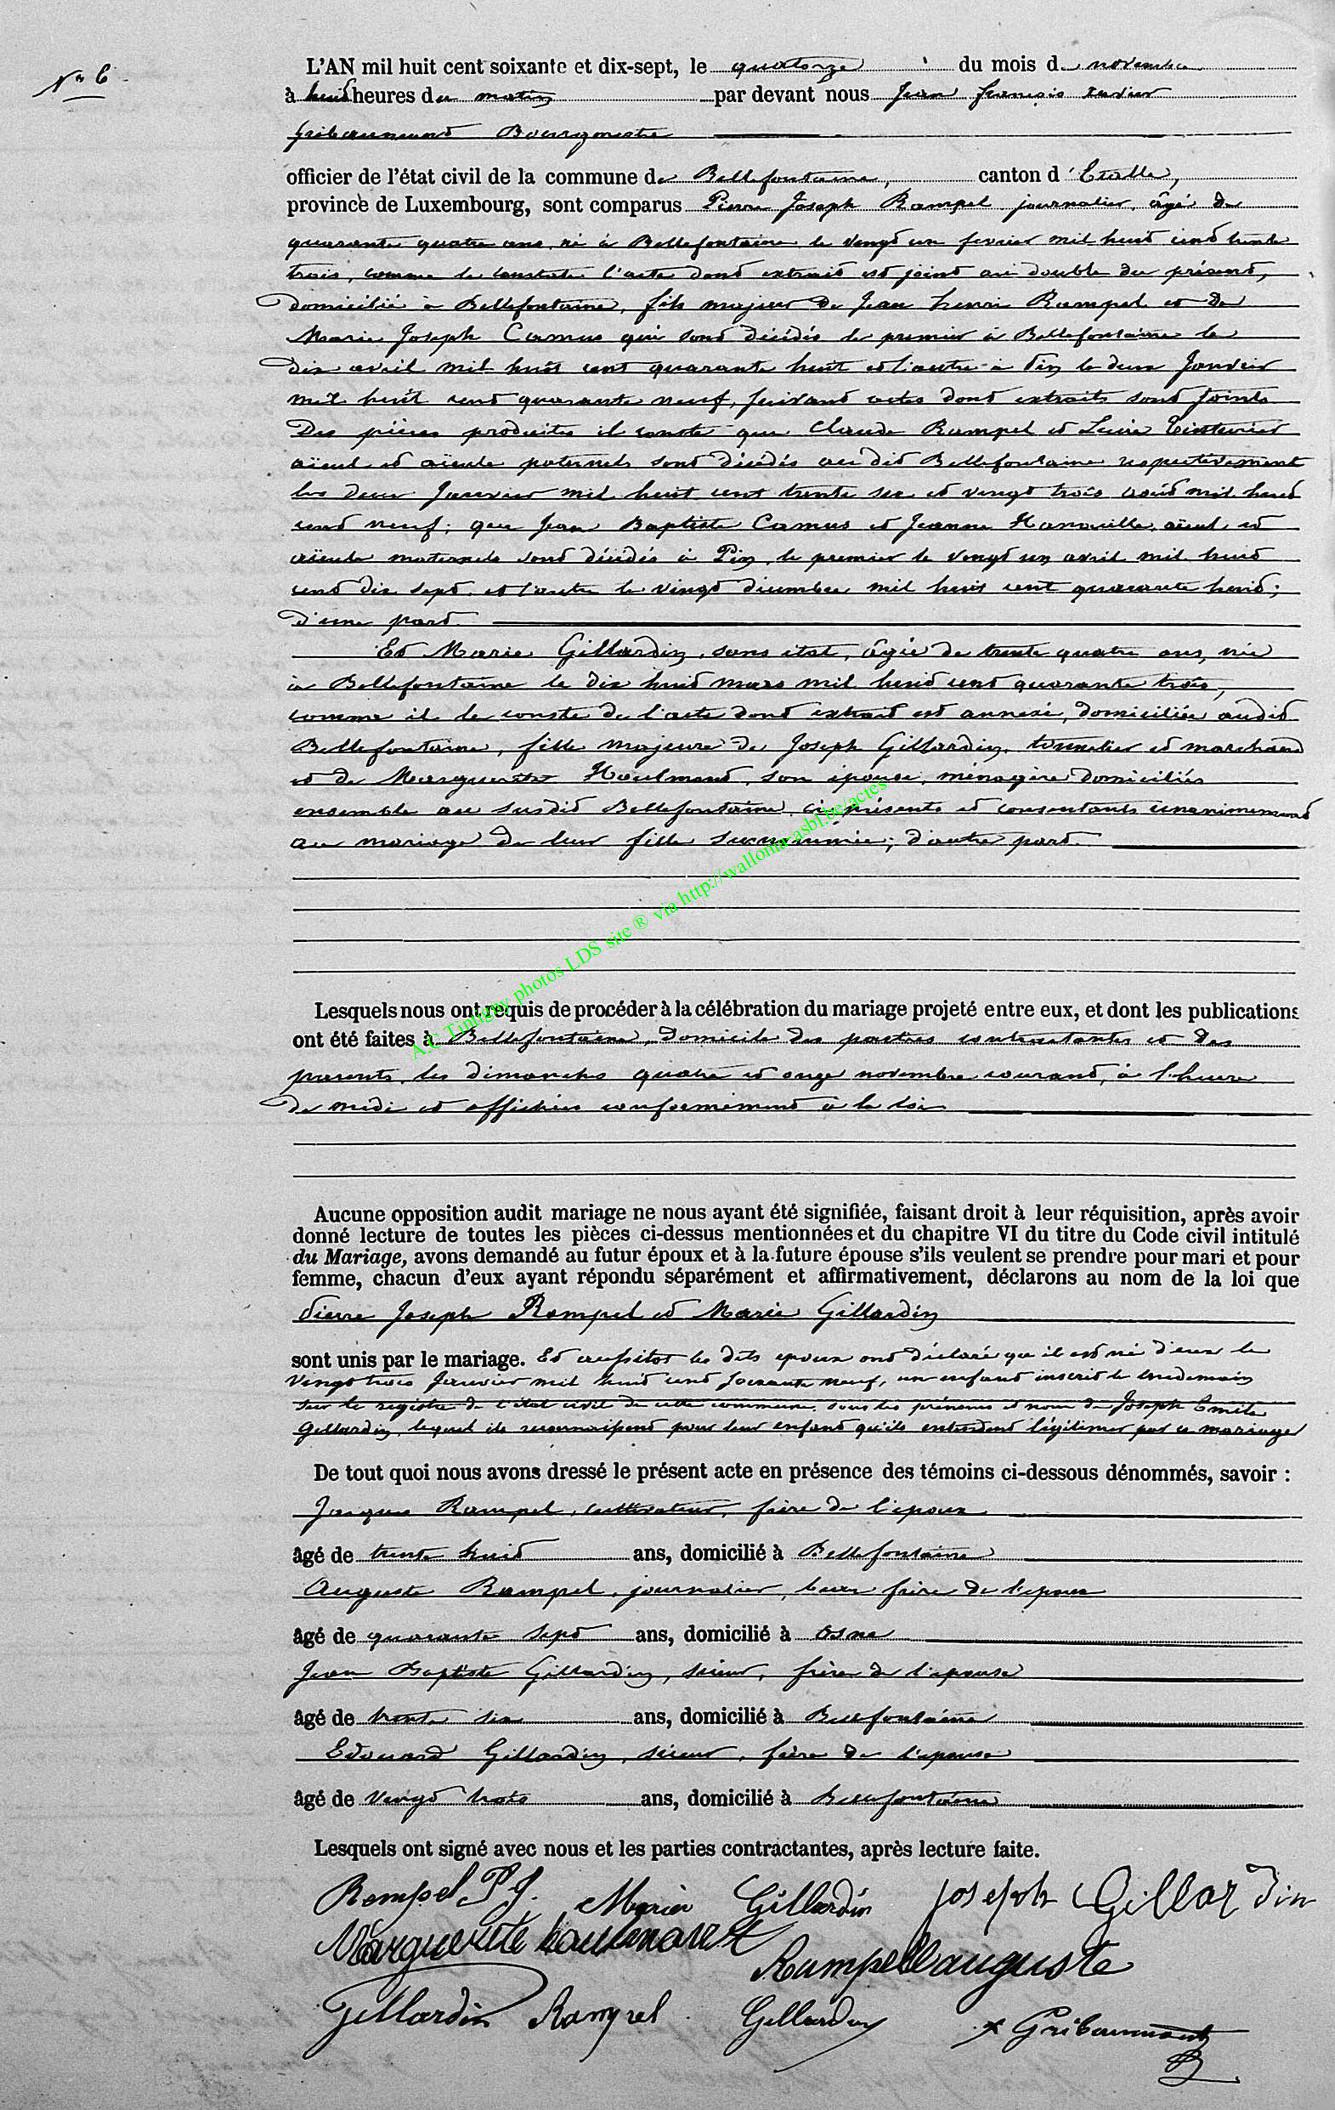 No 6
L'AN mil huit cent soixante et dix-sept, le quatorze du mois de novembre
à huit heures du matin par devant nous Jean françois xavier
Gribaumont Bourgmestre
officier de l'état civil de la commune de Bellefontaine, canton d'Etalle,
province de Luxembourg, sont comparus Pierre Joseph Rampel journalier, âgé de
quarante quatre ans, né à Bellefontaine le vingt un fevrier mil huit cent trente
trois, comme le constate l'acte dont extrait est joint au double du présent,
domicilié à Bellefontaine, fils majeur de Jean henri Rampel et de
Marie Joseph Camus qui sont décédés le premier à Bellefontaine le
dix avril mil huit cent quarante huit et l'autre à Pin le deux Janvier
mil huit cent quarante neuf, suivant actes dont extraits sont joints
Des pièces produites il conste que Claude Rampel et Lucie
aïeul et aïeule paternels sont décédés au dit Bellefontaine respectivement
les deux Janvier mil huit cent trente six et vingt trois août mil huit
cent neuf; que Jean Baptiste Camus et Jeanne aïeul et
aïeule maternels sont décédés à Pin, le premier le vingt un avril mil huit
cent dix sept et l'autre le vingt décembre mil huit cent quarante huit;
d'une part.
Et Marie Gillardin, sans état, âgée de trente quatre ans, née
à Bellefontaine le dix huit mars mil huit cent quarante trois,
comme il le conste de l'acte dont extrait est annexé, domiciliée audit
Bellefontaine, fille majeure de Joseph Gillardin, tonnelier et marchand
et de Marguerite Haulmont, son épouse, ménagère domiciliés
ensemble au susdit Bellefontaine, ci présents et consentants unanimement
au mariage de leur fille susnommée; d'autre part.
A.C Tintigny photos LDS site ® via http://wallonia.asbl.be/actes
Lesquels nous ont requis de procéder à la célébration du mariage projeté entre eux, et dont les publications
ont été faites à Bellefontaine, domicile des parties contractantes et des
parents, les dimanches quatre et onze novembre courant, à l'heure
de midi et affichées conformément à la loi
Aucune opposition audit mariage ne nous ayant été signifiée, faisant droit à leur réquisition, après avoir
donné lecture de toutes les pièces ci-dessus mentionnées et du chapitre VI du titre du Code civil intitulé
du Mariage, avons demandé au futur époux et à la future épouse s'ils veulent se prendre pour mari et pour
femme, chacun d'eux ayant répondu séparément et affirmativement, déclarons au nom de la loi que
Pierre Joseph Rampel et Marie Gillardin
sont unis par le mariage. Et aussitôt les dits époux ont déclaré qu'il est né d'eux le
vingt trois Janvier mil huit cent soixante neuf, un enfant inscrit le lendemain
sur le registre de l'état civil de cette commune, sous les prénoms et nom de Joseph Emile
Gillardin, lequel ils reconnaissent pour leur enfant qu'ils entendent légitimer par ce mariage
De tout quoi nous avons dressé le présent acte en présence des témoins ci-dessous dénommés, savoir :
Jacques Rampel, cultivateur, frère de l'époux
âgé de trente huit ans, domicilié à Bellefontaine
Auguste Rampel, journalier, beau frère de l'époux
âgé de quarante sept ans, domicilié à Osne
Jean Baptiste Gillardin, scieur, frère de l'épouse
âgé de trente six ans, domicilié à Bellefontaine
Edouard Gillardin, scieur, frère de l'épouse
âgé de vingt trois ans, domicilié à Bellefontaine
Lesquels ont signé avec nous et les parties contractantes, après lecture faite.
Rampel P J. Marie Gillardin Joseph Gillardin
Marguerite haulmont Rampel auguste
Gillardin Rampel Gillardin x Gribaumont